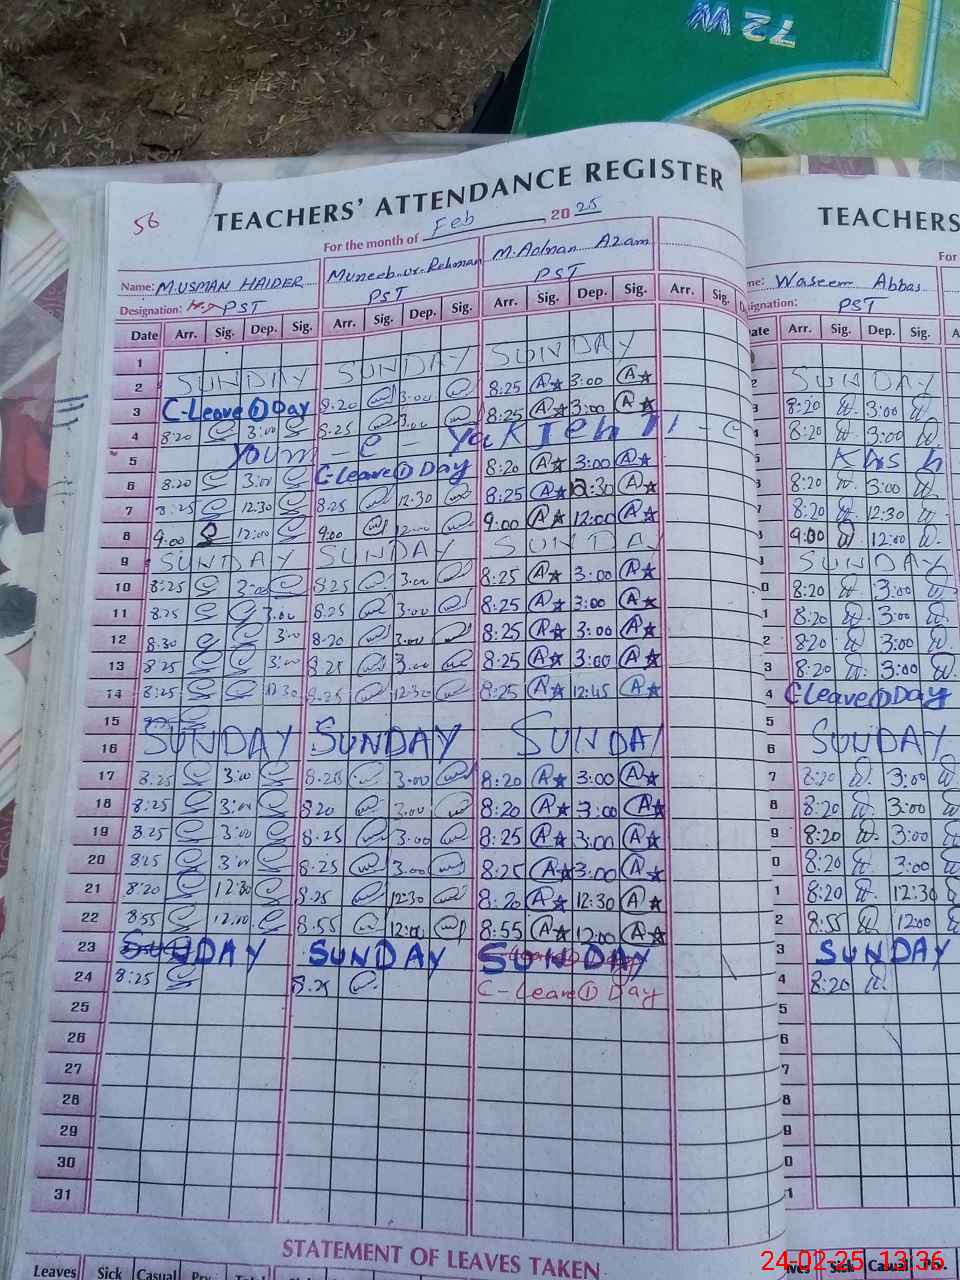 72 W
TEACHERS' ATTENDANCE REGISTER
56
For the month of Feb 20 25
Name: M.USMAN HAIDER Muneeb-ur-Rehman M. Adnan Azam
Designation: PST PST PST
Date Arr. Sig. Dep. Sig. Arr. Sig. Dep. Sig. Arr. Sig. Dep. Sig. Arr. Sig.
1
2 SUNDAY SUNDAY SUNDAY
3 C-Leave 1 Day 8:20 3:00 8:25 A 3:00 A
4 8:20 3:00 8:25 3:00 8:25 A 3:00 A
5 Youm-e-Yackjehti-e
6 8:20 3:00 C-Leave 1 Day 8:20 A 3:00 A
7 8:25 12:30 8:25 12:30 8:25 A 12:30 A
8 9:00 12:00 9:00 12:00 9:00 A 12:00 A
9 SUNDAY SUNDAY SUNDAY
10 8:25 3:00 8:25 3:00 8:25 A 3:00 A
11 8:25 3:00 8:25 3:00 8:25 A 3:00 A
12 8:30 3:00 8:20 3:00 8:25 A 3:00 A
13 8:25 3:00 8:25 3:00 8:25 A 3:00 A
14 8:25 12:30 8:25 12:30 8:25 A 12:45 A
15
16 SUNDAY SUNDAY SUNDAY
17 8:25 3:00 8:20 3:00 8:20 A 3:00 A
18 8:25 3:00 820 3:00 8:20 A 3:00 A
19 825 3:00 8:25 3:00 8:25 A 3:00 A
20 825 3:00 8:25 3:00 8:25 A 3:00 A
21 8:20 12:30 8:25 12:30 8:20 A 12:30 A
22 8:55 12:00 8:55 12:00 8:55 A 12:00 A
23 SUNDAY SUNDAY SUNDAY
24 8:25 8:25 C-Leave 1 Day
25
26
27
28
29
30
31
STATEMENT OF LEAVES TAKEN
Leaves Sick Casual Prv.
TEACHERS
For
me: Waseem Abbas
Designation: PST
Date Arr. Sig. Dep. Sig.
SUNDAY
8:20 3:00
8:20 3:00
Kash
8:20 3:00
8:20 12:30
9:00 12:00
SUNDAY
8:20 3:00
8:20 3:00
8:20 3:00
8:20 3:00
C Leave 1 Day
SUNDAY
8:20 3:00
8:20 3:00
8:20 3:00
8:20 3:00
8:20 12:30
8:55 12:00
SUNDAY
8:20
ves Sick Casual Prv.
24-02-25 13:36